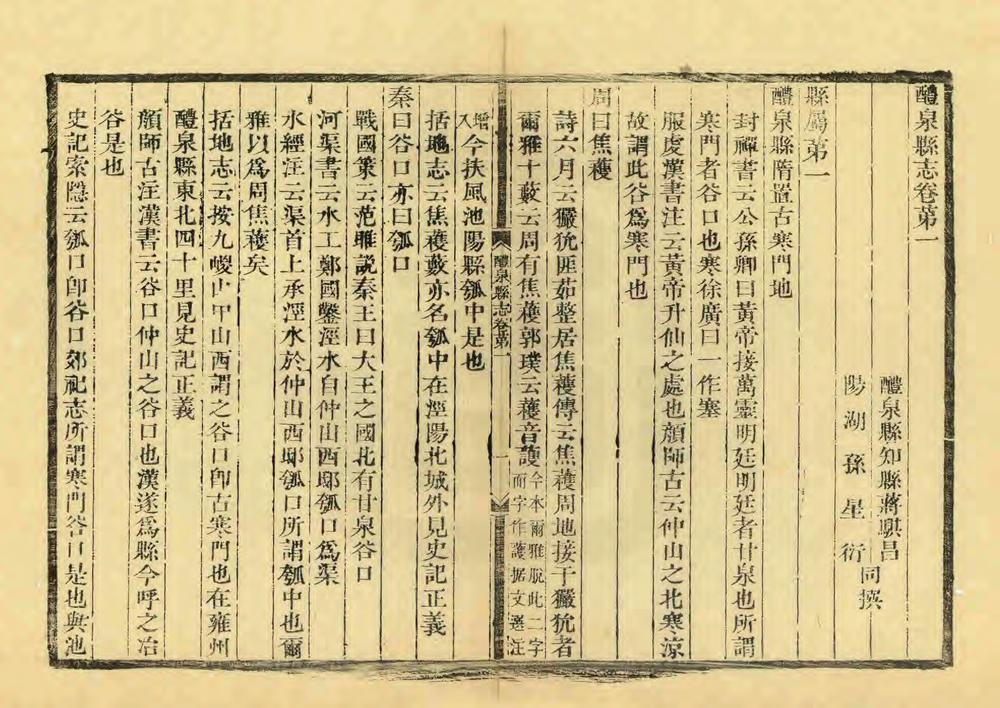 醴泉縣志卷第一
醴泉縣知縣蔣騏昌
陽湖孫星衍
同撰
縣屬第一
醴泉縣隋置古寒門地
封禪書云公孫卿曰黃帝接萬靈明廷明廷者甘泉也所謂
寒門者谷口也寒徐廣曰一作塞
服虔漢書注云黃帝升仙之處也顏師古云仲山之北寒涼
故謂此谷爲寒門也
周曰焦穫
詩六月云玁狁匪茹整居焦穫傳云焦穫周地接于玁狁者
爾雅十藪云周有焦穫郭璞云穫音護今本爾雅脫此二字
而字作護据文選注
增入今扶風池陽縣瓠中是也
醴泉縣志卷第一
一
括地志云焦穫藪亦名瓠中在涇陽北城外見史記正義
秦曰谷口亦曰瓠口
戰國策云范雎說秦王曰大王之國北有甘泉谷口
河渠書云水工鄭國鑿涇水自仲山西邸瓠口爲渠
水經注云渠首上承涇水於仲山西邸瓠口所謂瓠中也爾
雅以爲周焦穫矣
括地志云按九嵕山中山西謂之谷口卽古寒門也在雍州
醴泉縣東北四十里見史記正義
顏師古注漢書云谷口仲山之谷口也漢遂爲縣今呼之冶
谷是也
史記索隱云瓠口卽谷口郊祀志所謂寒門谷口是也與池